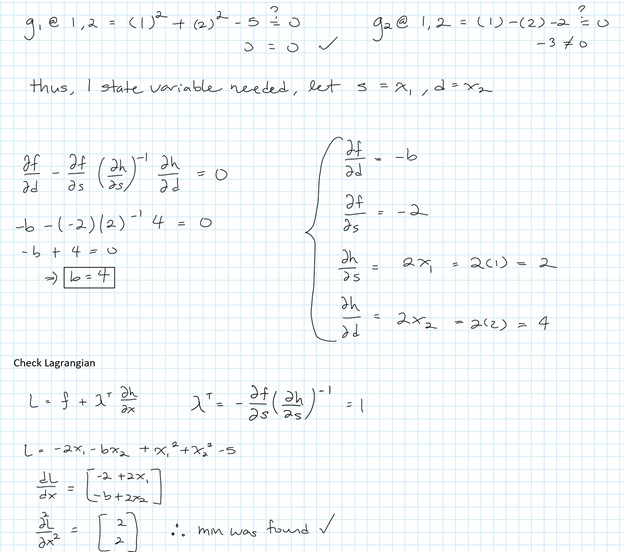 g₁ @ 1,2 = (1)² + (2)² - 5 ≟ 0 g₂ @ 1,2 = (1) - (2) - 2 ≟ 0
0 = 0 ✓ -3 ≠ 0
thus, 1 state variable needed, let s = x₁, d = x₂
∂f/∂d - ∂f/∂s (∂h/∂s)⁻¹ ∂h/∂d = 0
-b - (-2)(2)⁻¹ 4 = 0
-b + 4 = 0
⇒ b = 4
∂f/∂d = -b
∂f/∂s = -2
∂h/∂s = 2x₁ = 2(1) = 2
∂h/∂d = 2x₂ = 2(2) = 4
Check Lagrangian
L = f + λᵀ ∂h/∂x λᵀ = - ∂f/∂s (∂h/∂s)⁻¹ = 1
L = -2x₁ - bx₂ + x₁² + x₂² - 5
dL/dx = [-2 + 2x₁
-b + 2x₂]
∂²L/∂x² = [2
2] ∴ min was found ✓